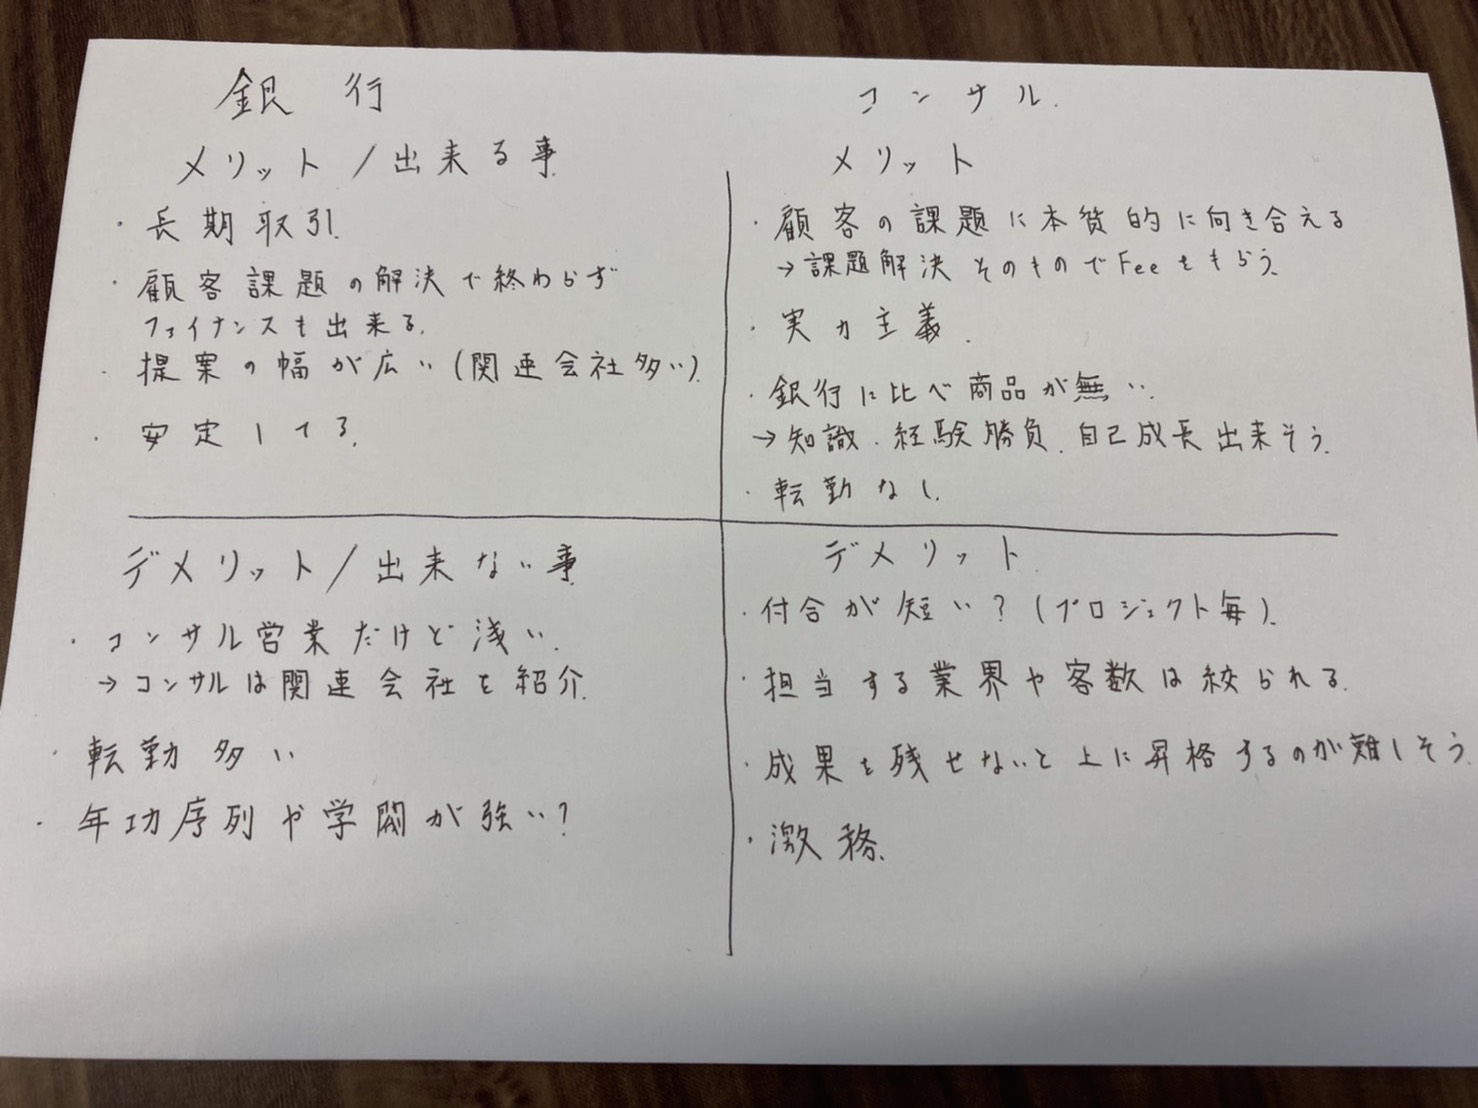 銀行
メリット/出来る事
・長期取引.
・顧客課題の解決で終わらず
ファイナンスも出来る.
・提案の幅が広い(関連会社多い).
・安定してる.
コンサル.
メリット
・顧客の課題に本質的に向き合える
→課題解決そのものでFeeをもらう.
・実力主義.
・銀行に比べ商品が無い.
→知識.経験勝負.自己成長出来そう.
・転勤なし.
デメリット/出来ない事
・コンサル営業だけど浅い.
→コンサルは関連会社を紹介.
・転勤多い
・年功序列や学閥が強い?
デメリット.
・付合が短い?(プロジェクト毎).
・担当する業界や客数は絞られる.
・成果を残せないと上に昇格するのが難しそう.
・激務.